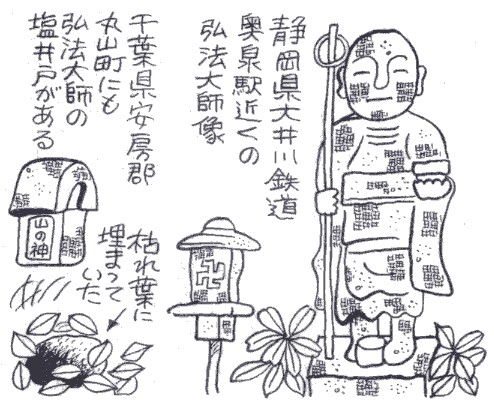 静岡県大井川鉄道
奥泉駅近くの
弘法大師像
千葉県安房郡
丸山町にも
弘法大師の
塩井戸がある
山の神
枯れ葉に
埋まって
いた